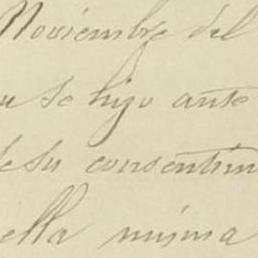 Noviembre del
se hizo ante
de su consentim
ella misma